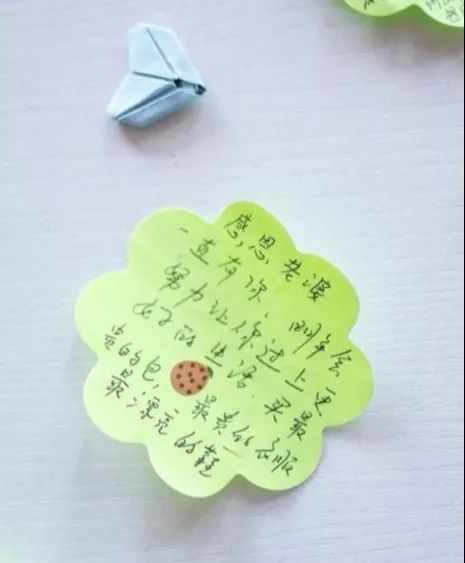 感恩老婆
一直有你 明年会
努力让你过上更
好的生活,买最
贵的包,最贵的衣服
最漂亮的鞋